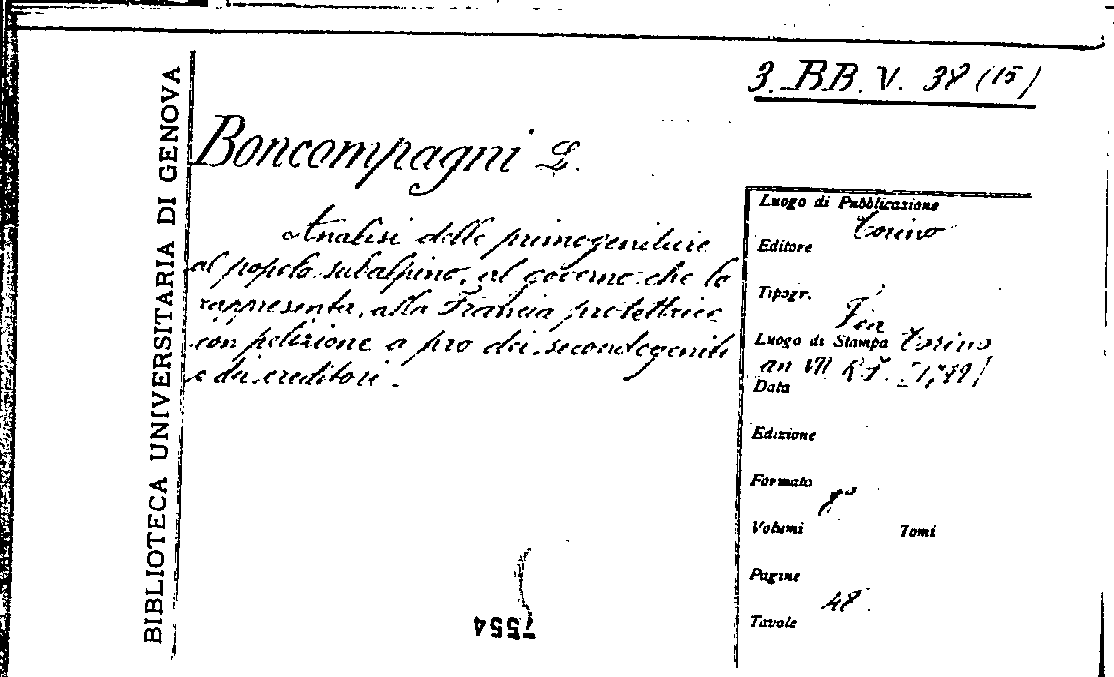 BIBLIOTECA UNIVERSITARIA DI GENOVA
3. BB. V. 38 (15)
Boncompagni L.
Analisi delle primogeniture
al popolo subalpino, al governo che lo
rappresenta, alla Francia protettrice
con petizione a pro dei secondogeniti
e dei creditori.
Luogo di Pubblicazione
Torino
Editore
Tipogr.
Fea
Luogo di Stampa Torino
an VII
Data
Edizione
Formato
8°
Volumi Tomi
Pagine
48.
Tavole
7554